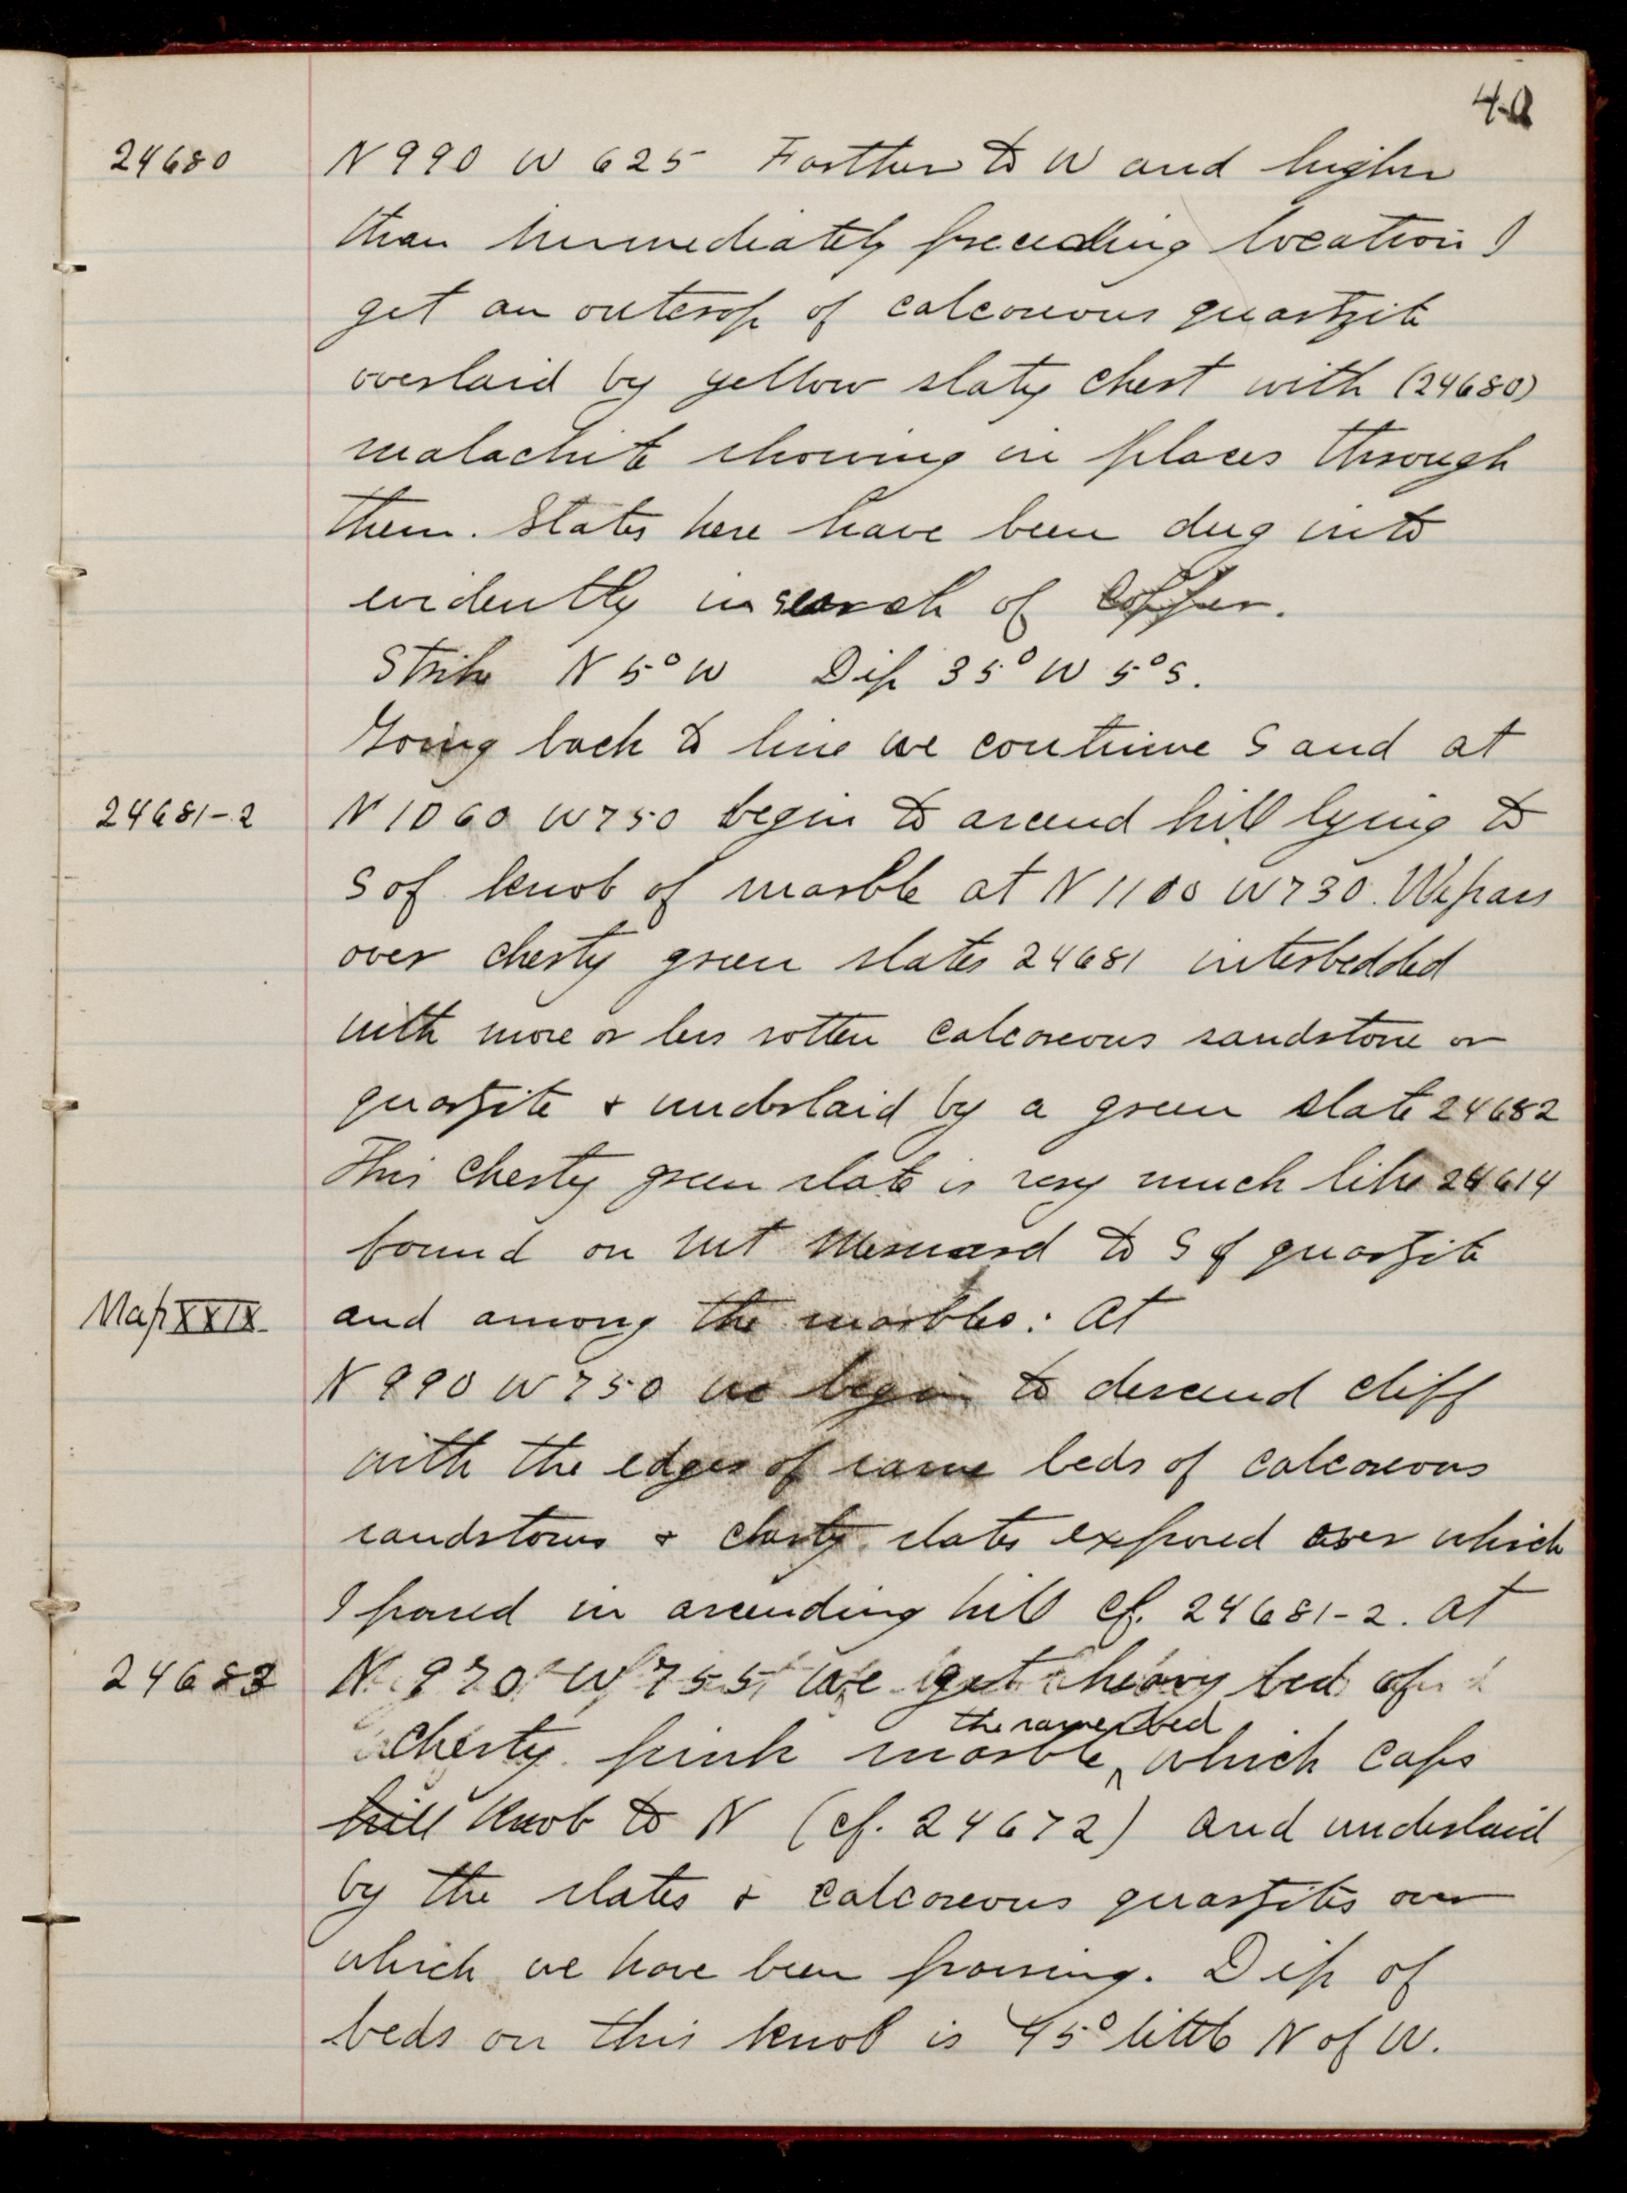 40
24680 N 990 W 625 Farther to W and higher
than immediately preceding location I
get an outcrop of calcareous quartzite
overlaid by yellow slaty chert with (24680)
malachite showing in places through
them. Slates here have been dug into
evidently in search of Copper.
Strike N 5° W Dip 35° W 5° S.
Going back to line we continue S and at
24681-2 N 1060 W 750 begin to ascend hill lying to
S of knob of marble at N 1100 W 730. We pass
over cherty green slates 24681 interbedded
with more or less rotten calcareous sandstone or
quartzite & underlaid by a green slate 24682
This cherty green slate is very much like 24614
found on Mt Mesnard to S of quartzite
Map XXIX and among the marbles. At
N 990 W 750 we begin to descend cliff
with the edges of same beds of calcareous
sandstones & cherty slates exposed over which
I passed in ascending hill cf. 24681-2. At
24683 N 970 W 755 we get heavy bed of
cherty pink marble, the same bed which caps
hill knob to N (cf. 24672) and underlaid
by the slates & calcareous quartzites over
which we have been passing. Dip of
beds on this knob is 45° little N of W.